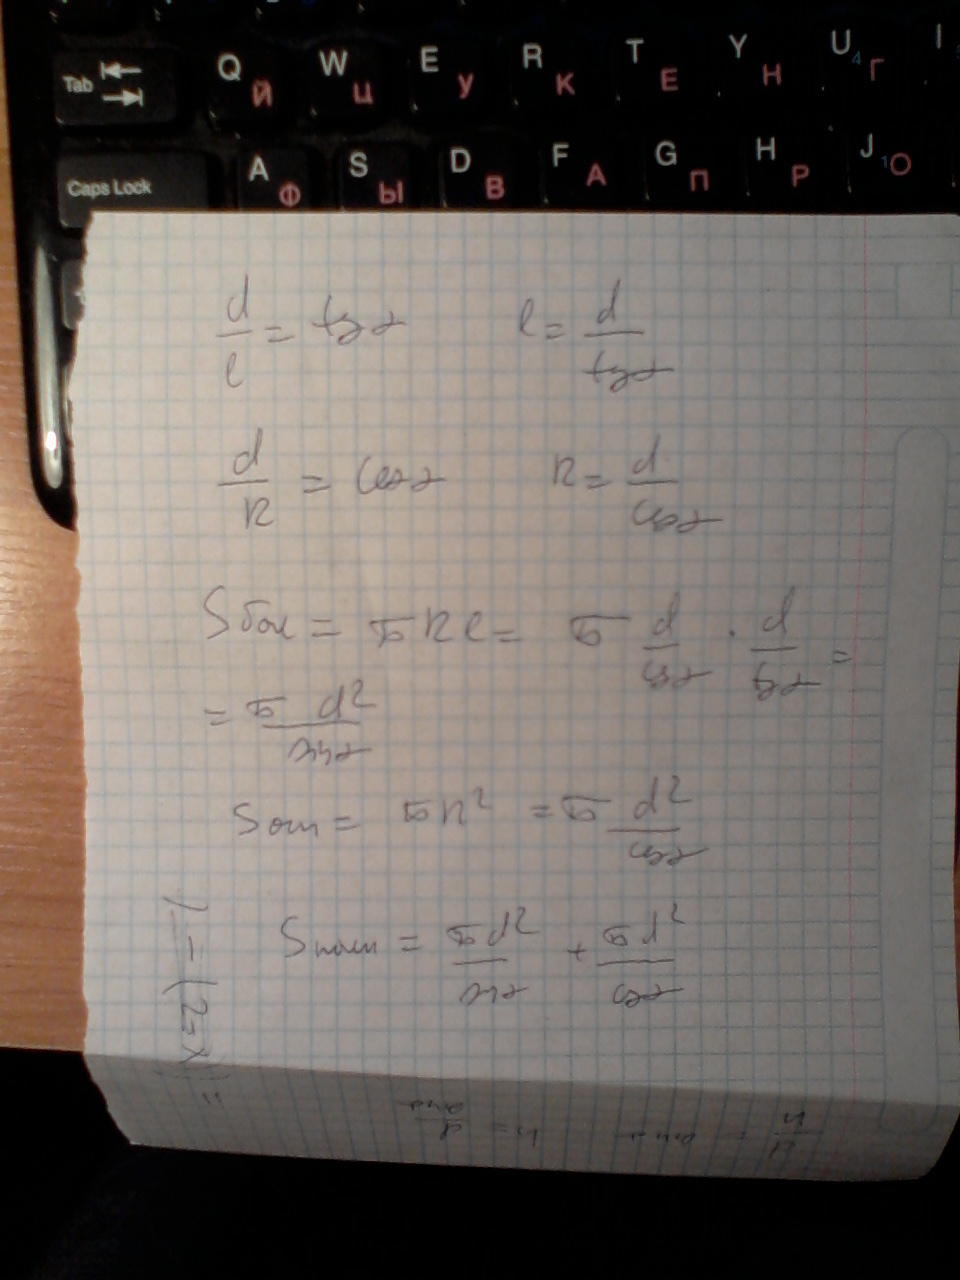 Tab Q Й W Ц E У R К T Е Y Н U 4 Г I
Caps Lock A Ф S Ы D В F А G П H Р J 1 О
d/l = tg α l = d/tg α
d/R = cos α R = d/cos α
S бок = π R l = π d/cos α · d/tg α =
= π d²/sin α
S осн = π R² = π d²/cos α
S полн = π d²/sin α + π d²/cos α